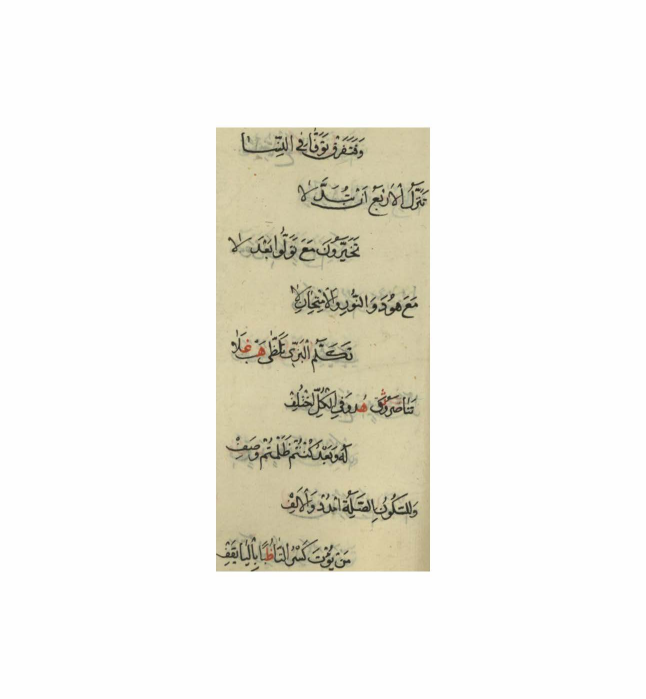 وتفرق توفا في النسا
تنزل الاربع ان تبدلا
تخيرون مع تولوا بعد لا
مع هود والنور والامتحان لا
تكلم البزى تلظى هب غلا
تناصروا ثق هد وفي الكل اختلف
له وبعد كنتم ظلمتم وصف
وللسكون الصلة امدد والالف
من يؤت كسر التا ظبا باليا يقف